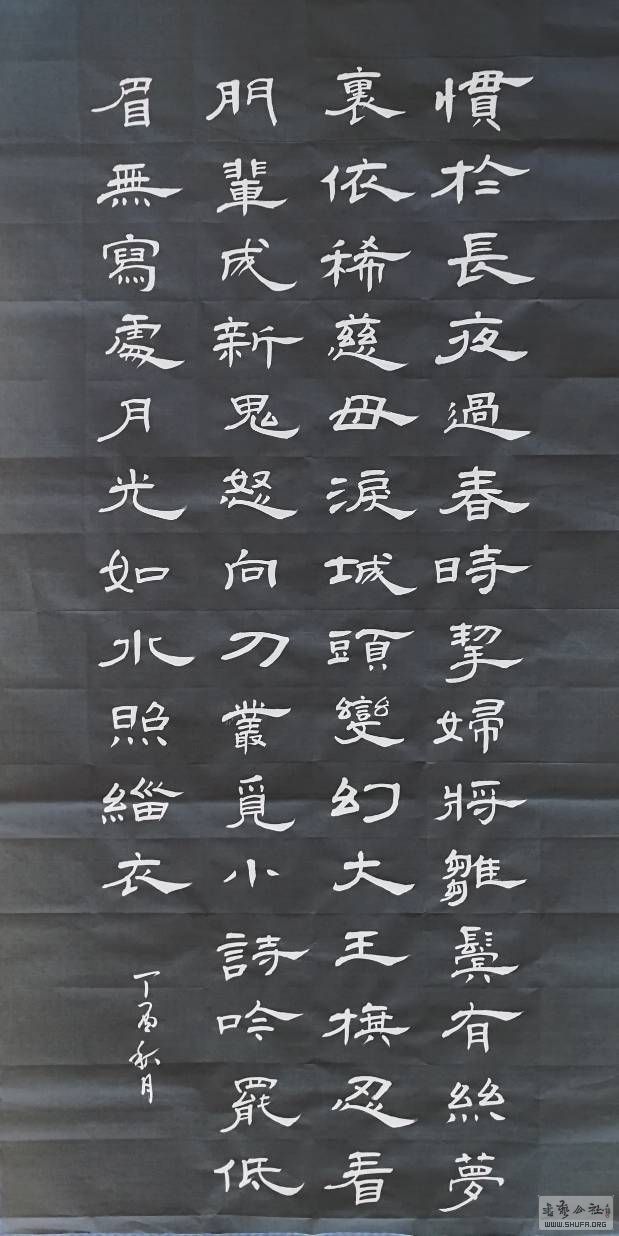 慣於長夜過春時挈婦將雛鬢有絲夢
裏依稀慈母淚城頭變幻大王旗忍看
朋輩成新鬼怒向刀叢覓小詩吟罷低
眉無寫處月光如水照緇衣
丁酉秋月
書藝公社
WWW.SHUFA.ORG